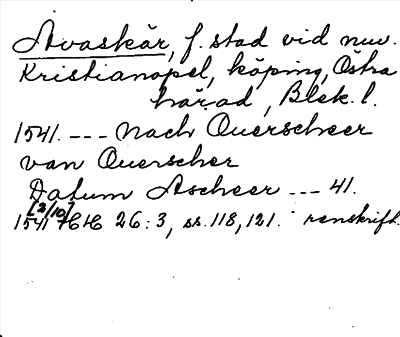 Avaskär, f. stad vid nuv.
Kristianopel, köping, Östra
härad, Blek. l.
1541. --- nach Ouerscheer
van Ouerscher
Datum Ascheer --- 41.
[3/10]
1541 HH 26:3, ss. 118, 121. renskrift.